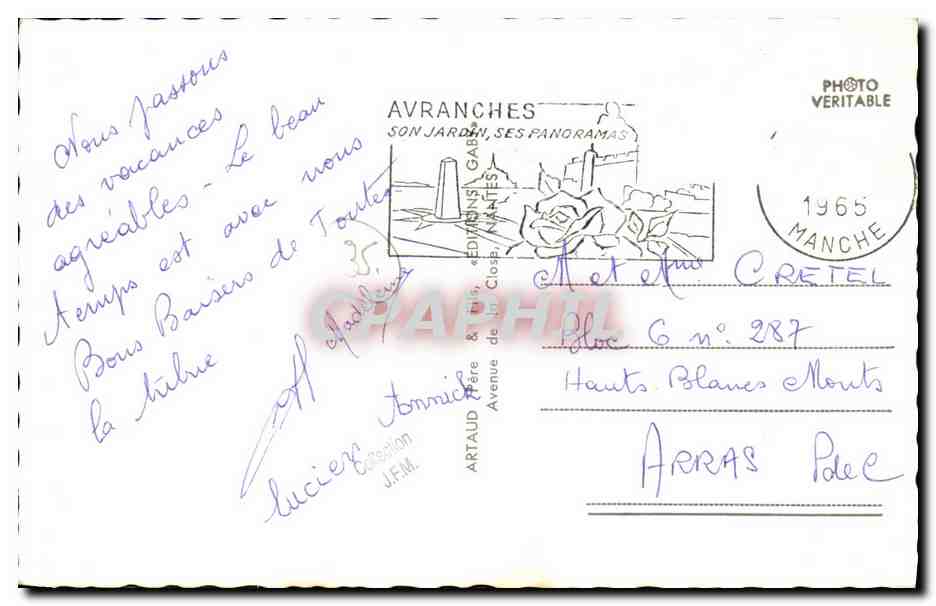 Nous passons
des vacances
agréables - Le beau
temps est avec nous
Bons Baisers de Toute
la tribu
Madeleine
Annick
Lucien
35.
Collection
J.F.M.
AVRANCHES
SON JARDIN, SES PANORAMAS
1965
MANCHE
PHOTO
VERITABLE
ARTAUD Père & Fils, «EDITIONS GABY»
Avenue de la Close, NANTES
CPAPHIL
M et Mme CRETEL
Bloc G n° 287
Hauts Blancs Monts
ARRAS PdeC